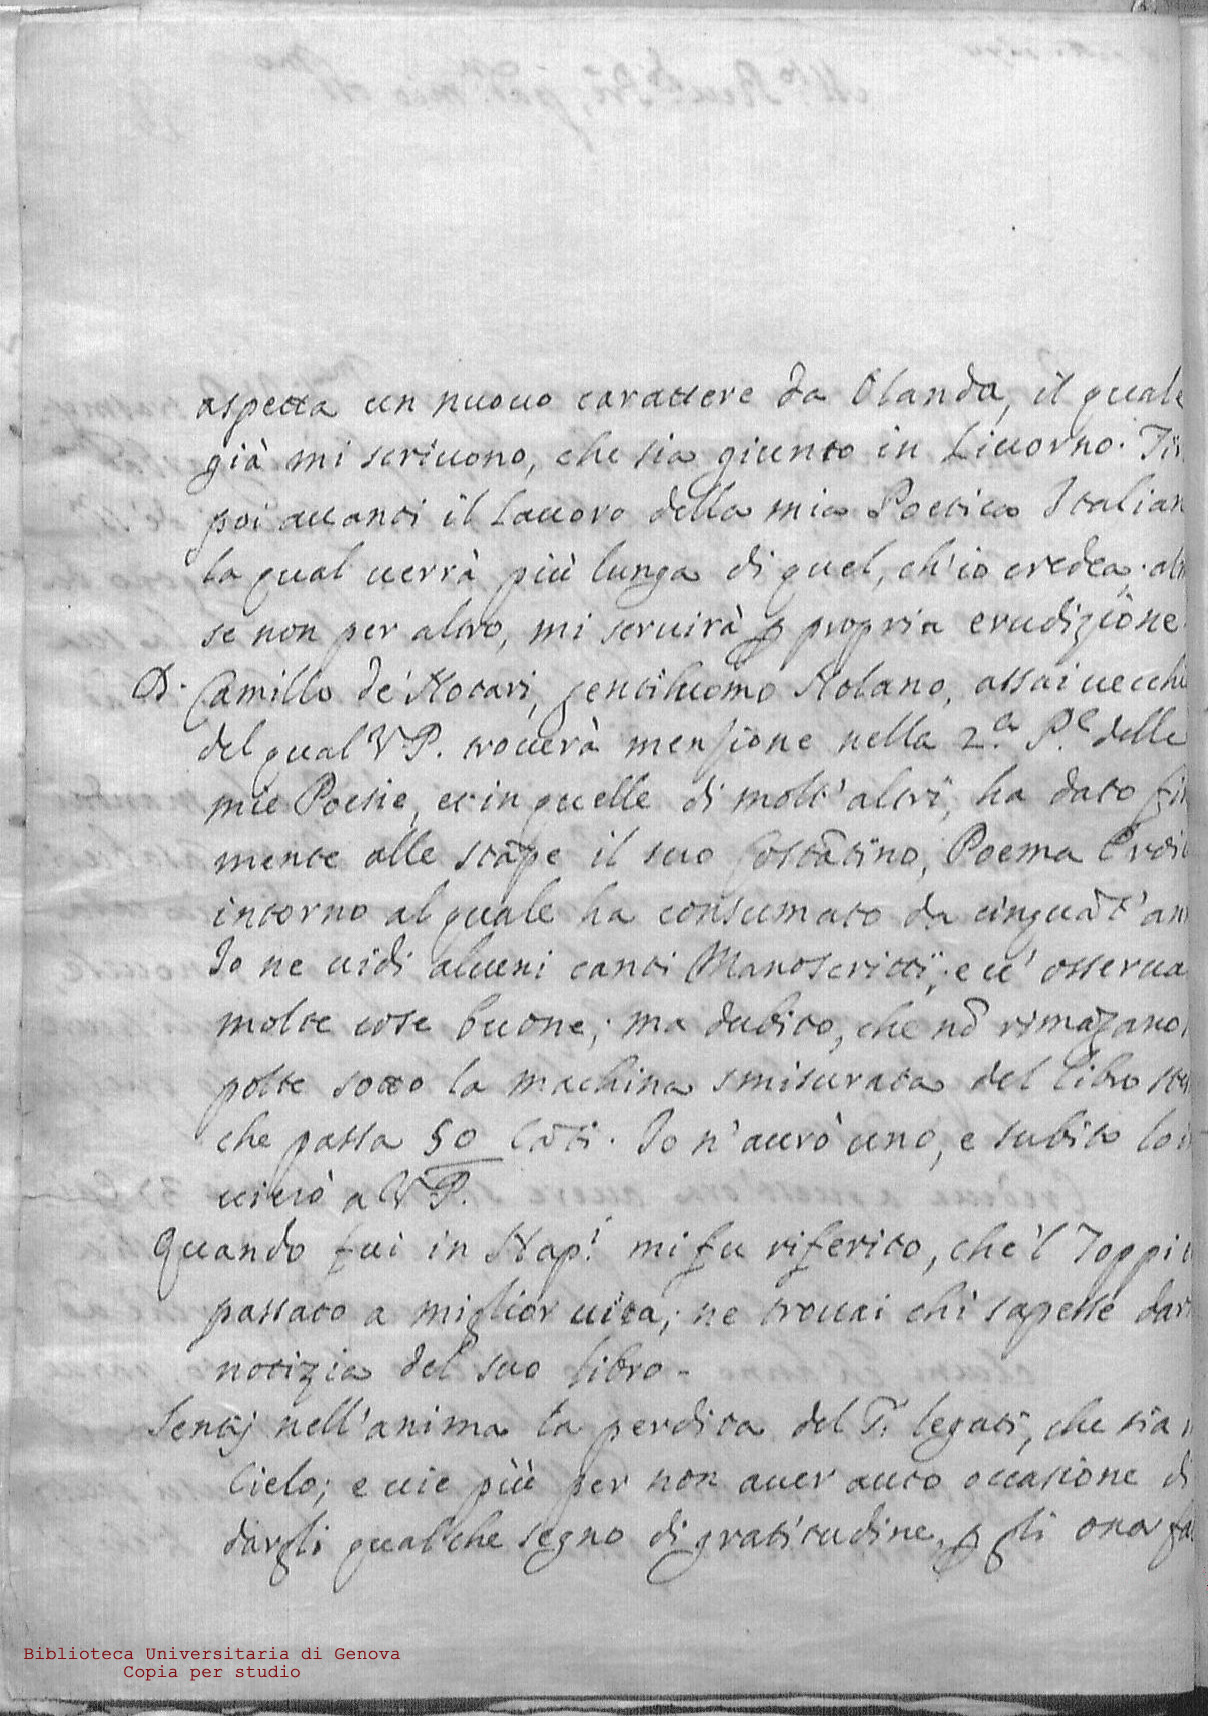 aspetta un nuouo carattere da Olanda, il quale
già mi scriuono, che sia giunto in Liuorno. Tir
poi auanti il lauoro della mia Poetica Italian
la qual uerrà più lunga di quel, ch'io credea;
se non per altro, mi seruirà ꝑ propria erudizione.
D. Camillo de' Notari, gentiluomo Nolano, assai uecchi
del qual V.P. trouerà menzione nella 2.a P.e delle
mie Poesie, et in quelle di molt'altri, ha dato fin
mente alle stãpe il suo Costãtino, Poema Eroi
intorno al quale ha consumato da cinquãt'ann
Io ne uidi alcuni canti Manoscritti; e u' osserua
molte cose buone; ma dubito, che nõ rimãgano
polte sotto la machina smisurata del libro ste
che passa 50 Cãti. Io n'aurò uno, e subito lo in
uierò a V.P.
Quando fui in Nap.i mi fu riferito, che'l Toppi
passato a miglior uita; ne trouai chi sapesse dar
notizia del suo libro-
Sentij nell'anima la perdita del P. legati, che sia
Cielo; e uie più per non auer auto occasione di
dargli qualche segno di gratitudine, ꝑ gli onor fa
Biblioteca Universitaria di Genova
Copia per studio